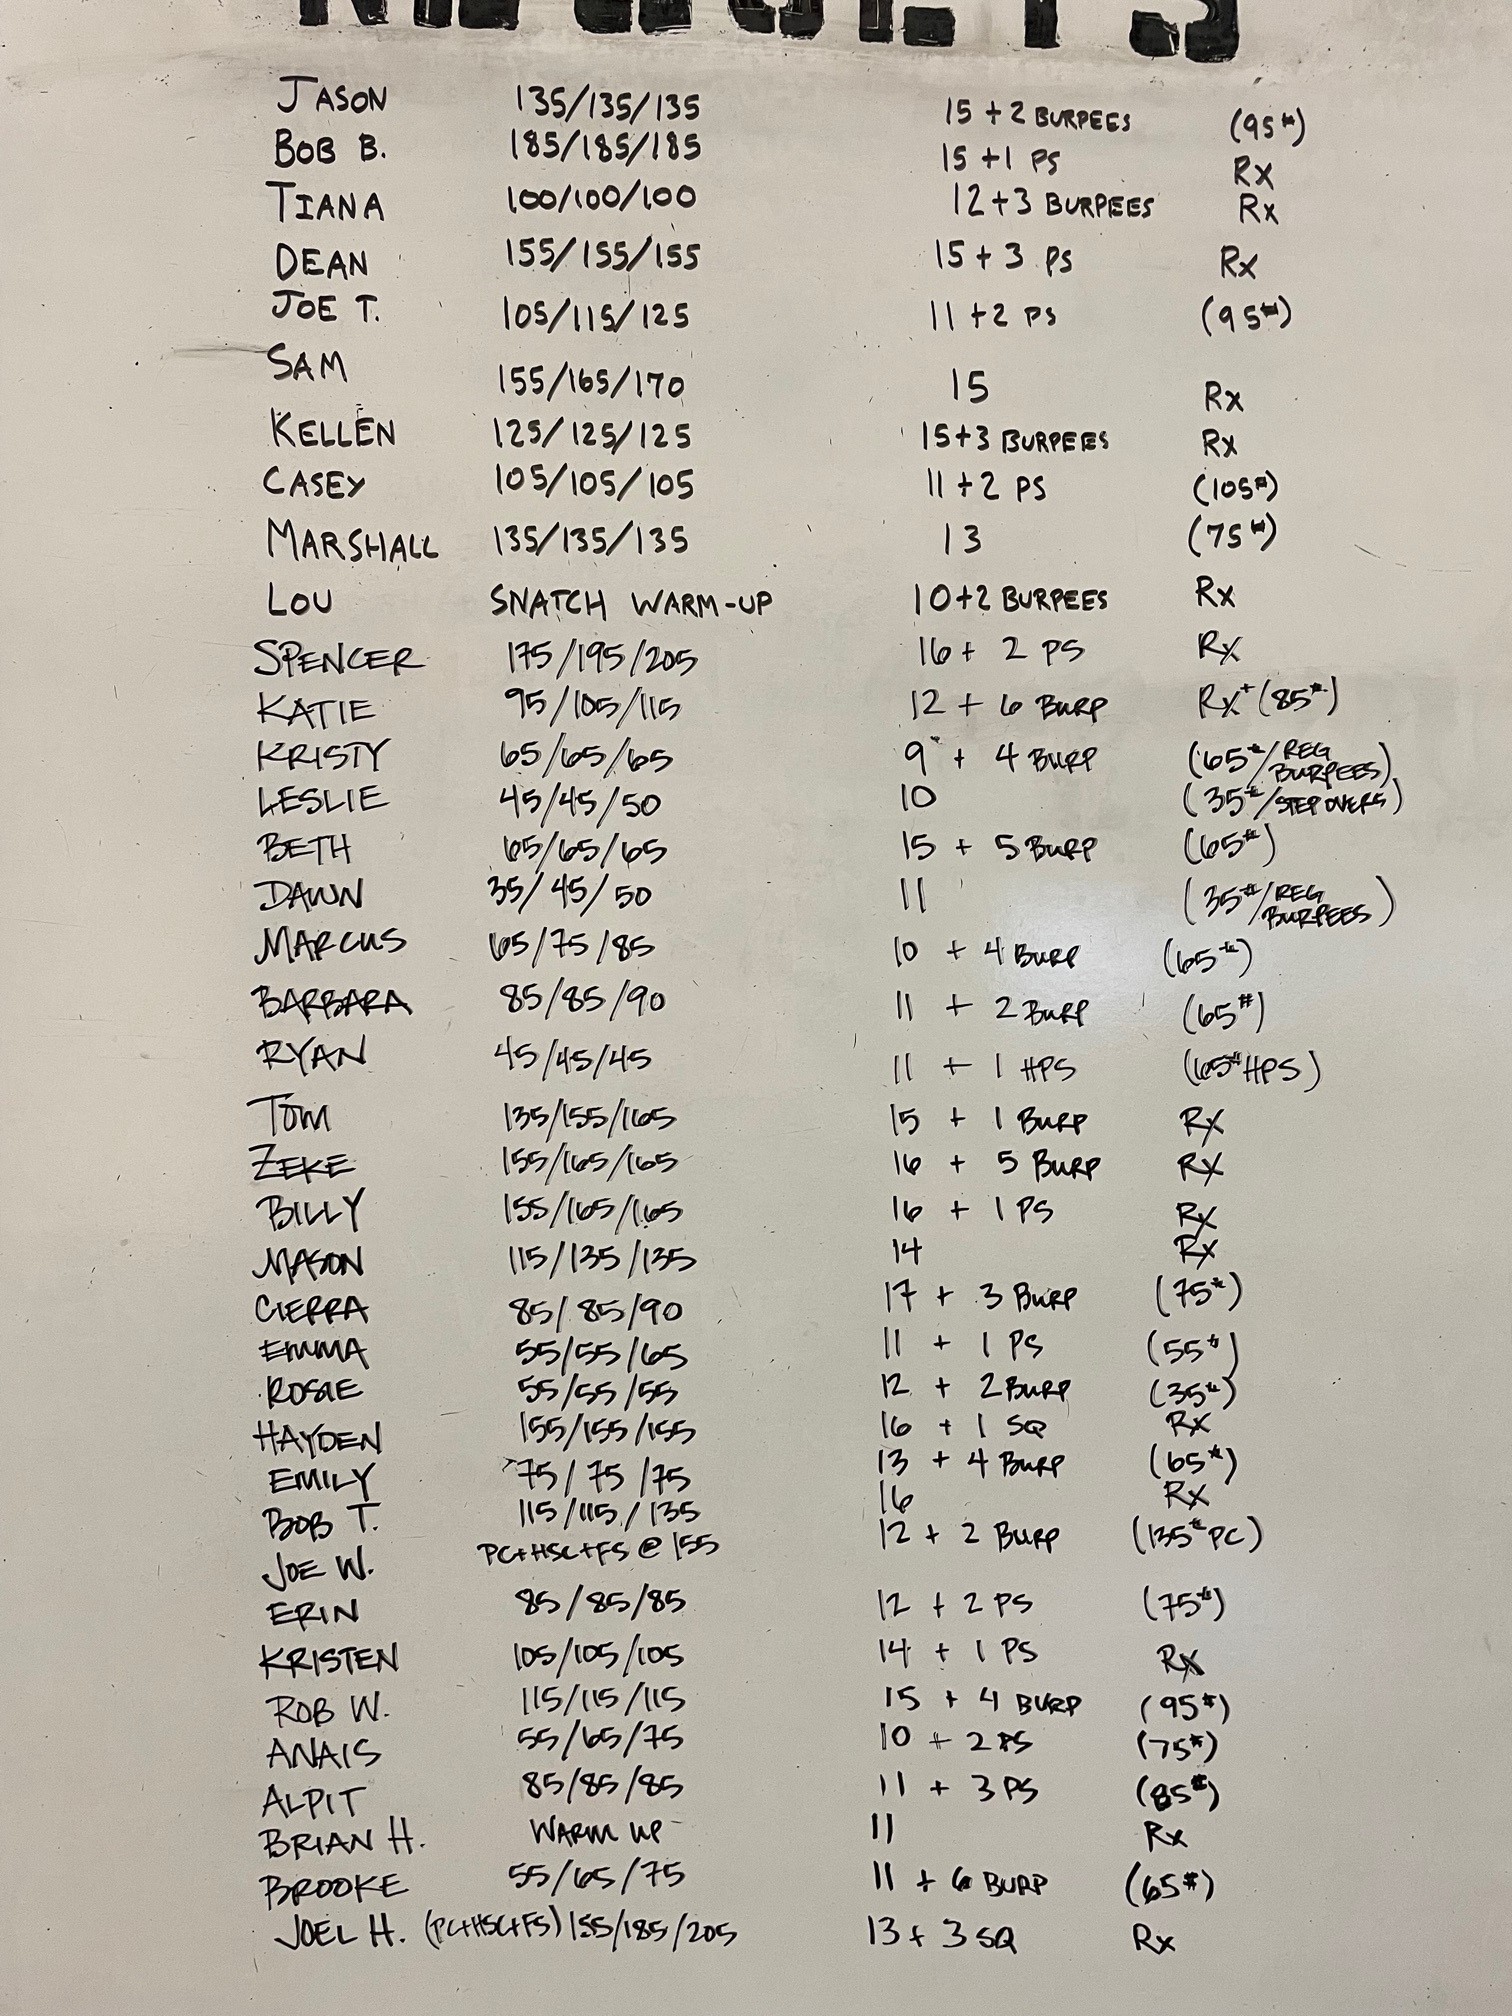 JASON 135/135/135 15 + 2 BURPEES (95#)
BOB B. 185/185/185 15 +1 PS Rx
TIANA 100/100/100 12+3 BURPEES Rx
DEAN 155/155/155 15 + 3 PS Rx
JOE T. 105/115/125 11 +2 PS (95#)
SAM 155/165/170 15 Rx
KELLEN 125/125/125 15+3 BURPEES Rx
CASEY 105/105/105 11 +2 PS (105#)
MARSHALL 135/135/135 13 (75#)
LOU SNATCH WARM-UP 10+2 BURPEES Rx
SPENCER 175/195/205 16 + 2 PS Rx
KATIE 95/105/115 12 + 6 BURP Rx+ (85#)
KRISTY 65/65/65 9 + 4 BURP (65#/REG BURPEES)
LESLIE 45/45/50 10 (35#/STEP OVERS)
BETH 65/65/65 15 + 5 BURP (65#)
DAWN 35/45/50 11 (35#/REG BURPEES)
MARCUS 65/75/85 10 + 4 BURP (65#)
BARBARA 85/85/90 11 + 2 BURP (65#)
RYAN 45/45/45 11 + 1 HPS (65# HPS)
TOM 135/155/165 15 + 1 BURP Rx
ZEKE 155/165/165 16 + 5 BURP Rx
BILLY 155/165/165 16 + 1 PS Rx
MASON 115/135/135 14 Rx
CIERRA 85/85/90 17 + 3 BURP (75#)
EMMA 55/55/65 11 + 1 PS (55#)
ROSIE 55/55/55 12 + 2 BURP (35#)
HAYDEN 155/155/155 16 + 1 SQ Rx
EMILY 75/75/75 13 + 4 BURP (65#)
BOB T. 115/115/135 16 Rx
JOE W. PC+HSC+FS @ 155 12 + 2 BURP (135# PC)
ERIN 85/85/85 12 + 2 PS (75#)
KRISTEN 105/105/105 14 + 1 PS Rx
ROB W. 115/115/115 15 + 4 BURP (95#)
ANAIS 55/65/75 10 + 2 PS (75#)
ALPIT 85/85/85 11 + 3 PS (85#)
BRIAN H. WARM UP 11 Rx
BROOKE 55/65/75 11 + 6 BURP (65#)
JOEL H. (PC+HSC+FS) 155/185/205 13 + 3 SQ Rx